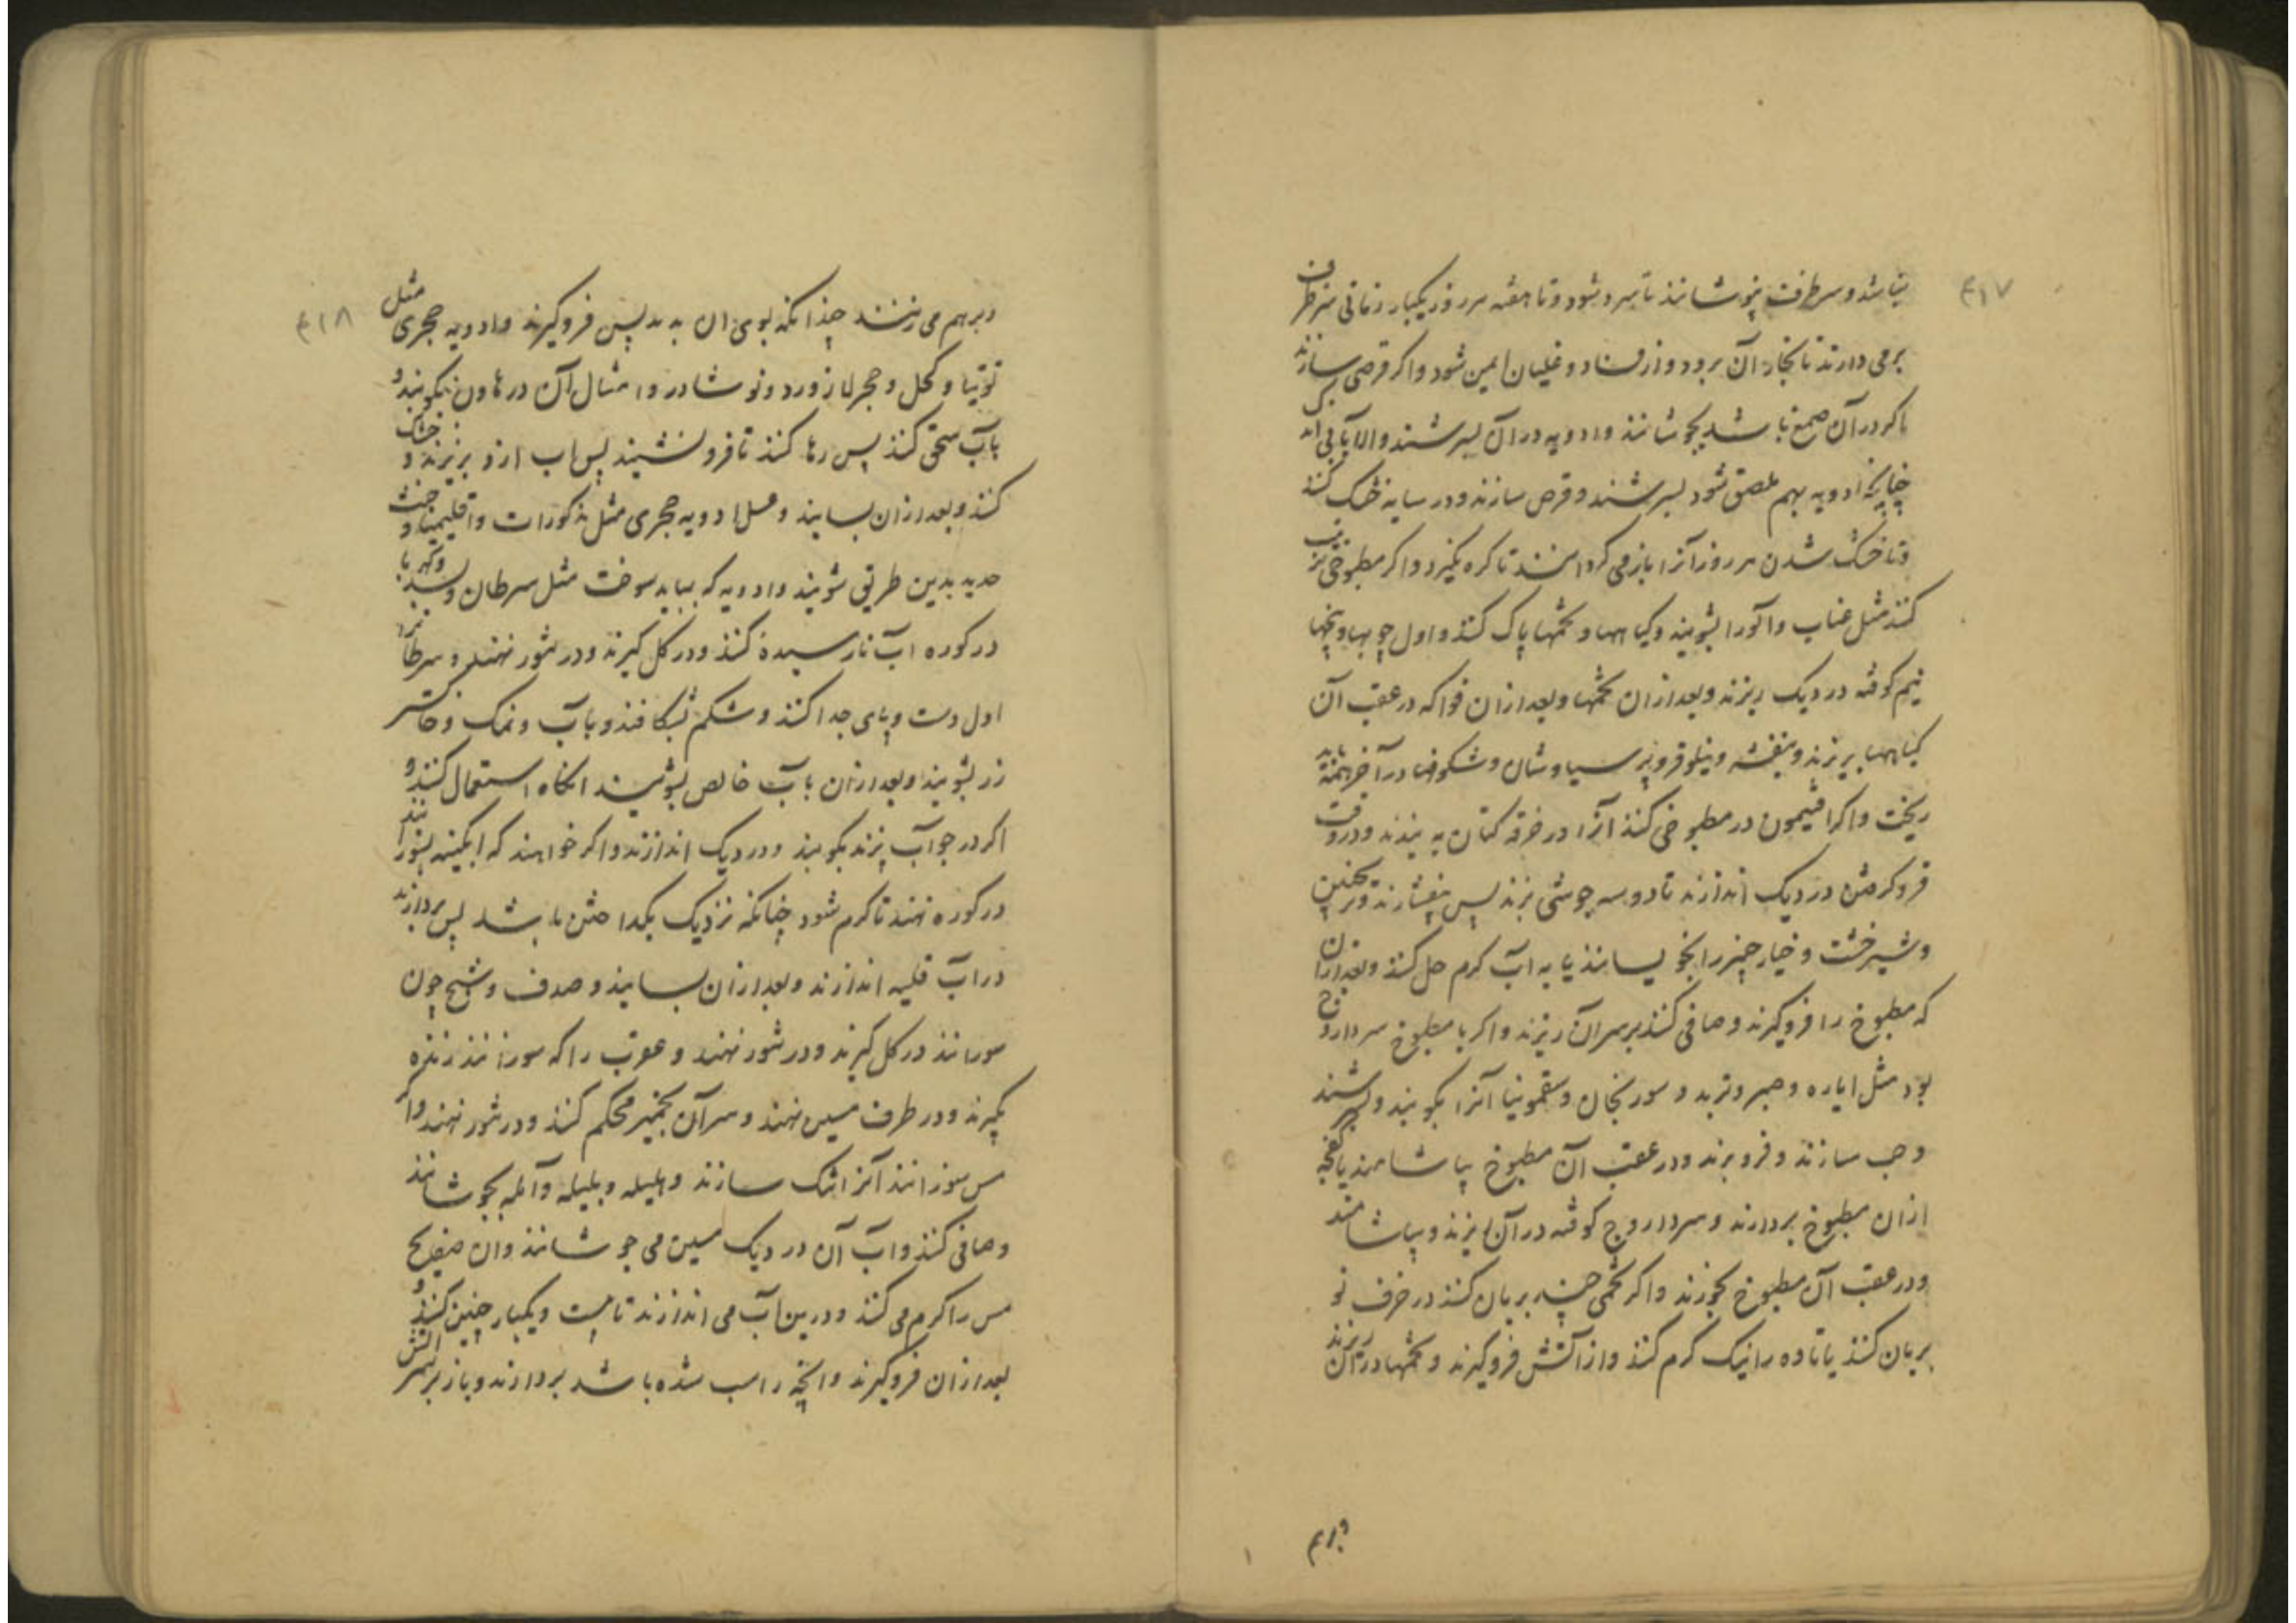 ۴۱۷
نباشد و سر ظرف بپوشانند تا سرد شود و تا هفته هر روز یکبار زمانی سر ظرف
برمی دارند تا بخار آن برود و از فساد و غلیان ایمن شود و اگر قرصی سازند
اگر در آن صمغ باشد بجوشانند و ادویه در آن بسرشند والا بآبی
چنانچه ادویه بهم ملصق شود بسرشند و قرص سازند و در سایه خشک کنند
و تا خشک شدن هر روز آنرا باز می کردانند تا کره نکیرد و اگر مطبوخی
کنند مثل عناب و آلو را بشویند و کیاهها و تخمها پاک کنند و اول چوبها و بیخها
نیم کوفته در دیک ریزند و بعد از ان تخمها و بعد از ان فواکه در عقب آن
کیاهها بریزند و بنفشه و نیلوفر و پرسیاوشان و شکوفها در آخر همه باید
ریخت و اگر افتیمون در مطبوخی کنند آنرا در خرقه کتان به بندند و در وقت
فرو کرفتن در دیک اندازند تا دو سه جوشی بزند پس بیفشارند و ترنجبین
و شیرخشت و خیارچنبر را بخویسانند یا به آب کرم حل کنند و بعد از ان
که مطبوخ را فروکیرند و صافی کنند بر سر آن ریزند و اگر با مطبوخ سرداروج
بود مثل ایاره و صبر و تربد و سورنجان و سقمونیا آنرا بکوبند و بسرشند
و حب سازند و فرو برند و در عقب آن مطبوخ بیاشامند یا کفچه
از ان مطبوخ بردارند و سرداروج کوفته در آن ریزند و بیاشامند
و در عقب آن مطبوخ بخورند و اگر تخمی چند بریان کنند در خزف نو
بریان کنند یا تاوه را نیک کرم کنند و از آتش فروکیرند و تخمها در آن ریزند
وبرهم
۴۱۸
وبرهم می زنند چندانکه بوی ان بدمد پس فروکیرند و ادویه حجری مثل
توتیا و کحل و حجر لازورد و نوشادر و امثال آن در هاون بکوبند و
بآب سحق کنند پس رها کنند تا فرو نشیند پس اب ازو بریزند و خشک
کنند و بعد از ان بسایند و غسل ادویه حجری مثل مذکورات و اقلیمیا و خبث
حدید بدین طریق شویند و ادویه که بباید سوخت مثل سرطان و بسد و کهربا
در کوزه اب نارسیده کنند و در کل کیرند و در تنور نهند و سرطان
اول دست و پای جدا کنند و شکم بشکافند و بآب و نمک و خاکستر
رز بشویند و بعد از ان بآب خالص بشویند انکاه استعمال کنند و
اگر در جو آب پزند بکوبند و در دیک اندازند و اگر خواهند که ابکینه بسوزانند
در کوره نهند تا کرم شود چنانکه نزدیک بکداختن باشد پس بردارند
در آب قلیه اندازند و بعد از ان بسایند و صدف و شبج چون
سوزانند در کل کیرند و در تنور نهند و عقرب را که سوزانند زنده
بکیرند و در ظرف مسین نهند و سر آن بخمیر محکم کنند و در تنور نهند و اگر
مس سوزانند آنرا تنک سازند و هلیله و بلیله و آمله بجوشانند
و صافی کنند و آب آن در دیک مسین می جوشانند و ان صفایح
مس را کرم می کنند و درین آب می اندازند تا بیست و یکبار چنین کنند و
بعد از ان فروکیرند و انچه راسب شده باشد بردارند و باز بر سر آتش